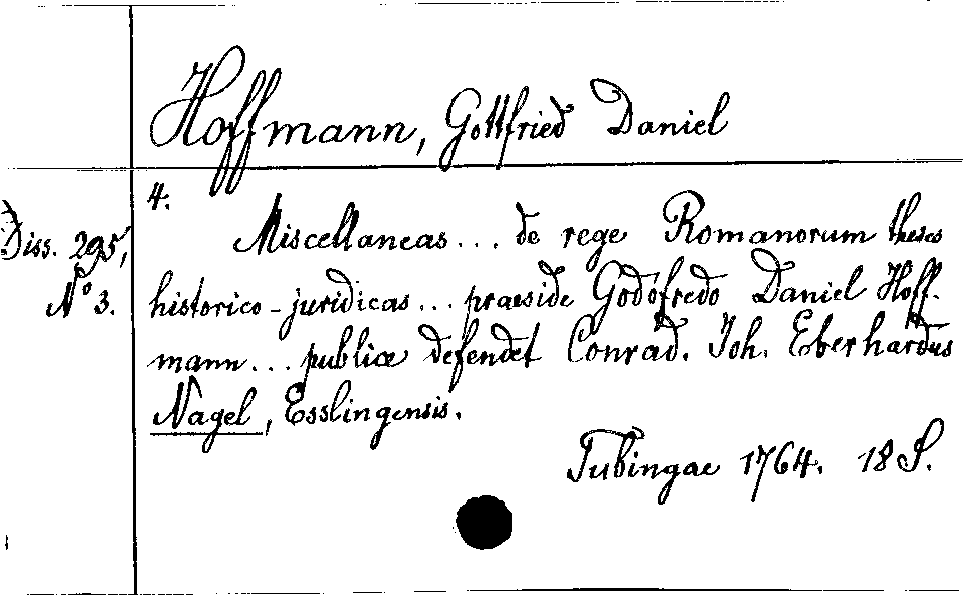 Hoffmann, Gottfried Daniel
4.
Diss. 295,
N° 3.
Miscellaneas... de rege Romanorum theses
historico-juridicas... praeside Godofredo Daniel Hoff-
mann... publice defendet Conrad. Joh. Eberhardus
Nagel, Esslingensis.
Tubingae 1764. 18 S.